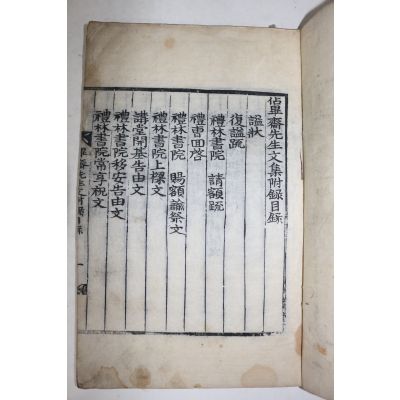 佔畢齋先生文集附錄目錄
諡狀
復諡疏
禮林書院 請額疏
禮曹回啓
禮林書院 賜額諭祭文
禮林書院上樑文
講堂開基告由文
禮林書院移安告由文
禮林書院常享祝文
畢齋先生文附錄目錄 一